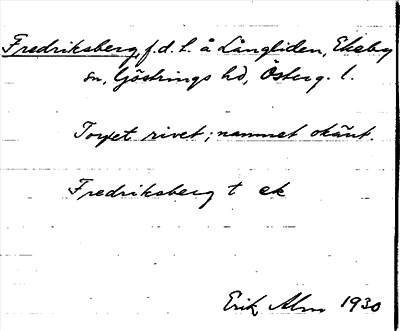 Fredriksberg, f.d. t. å Långliden, Ekeby
sn, Göstrings hd, Österg. l.
Torpet rivet; namnet okänt.
Fredriksberg t ek
Erik Alm 1930